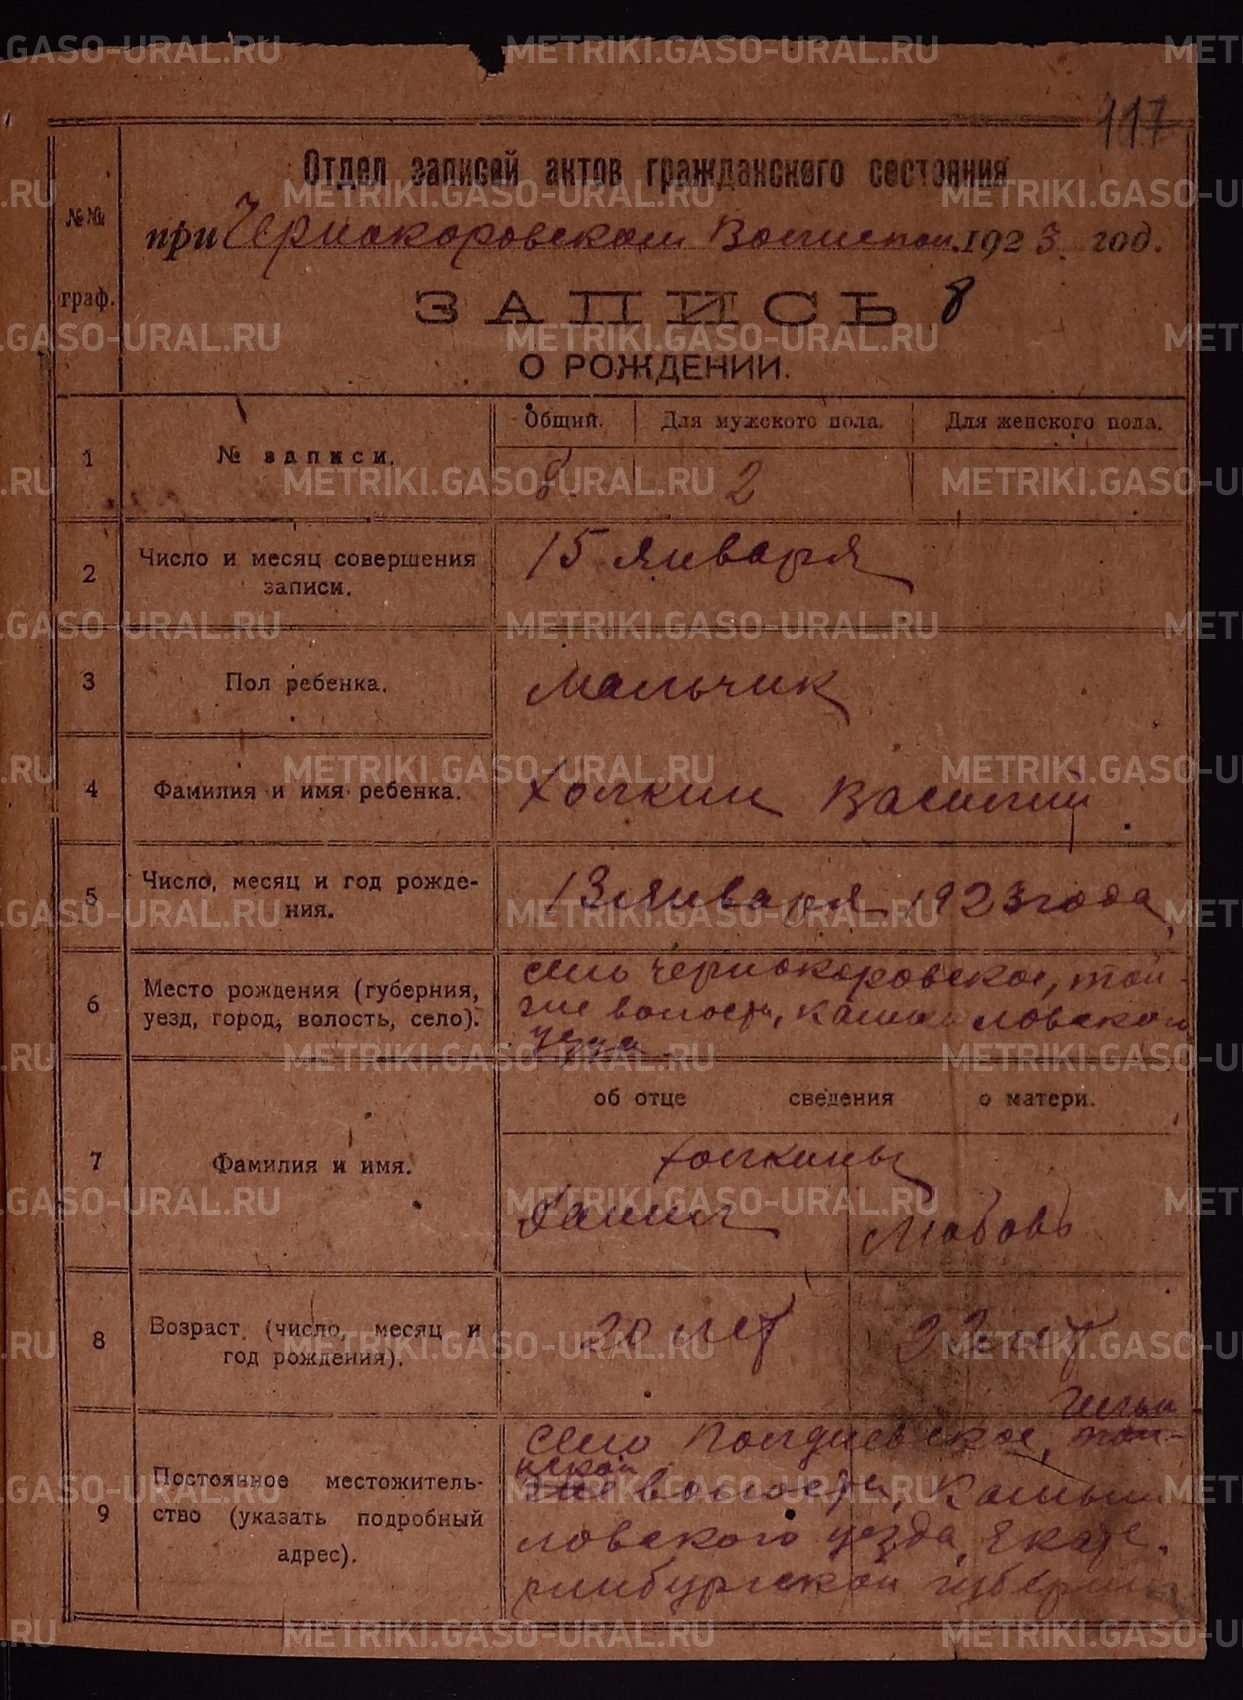 117
Отдел записей актов гражданского состояния
№№ граф.
при Чернокоровском Волисполк. 1923 год.
ЗАПИСЬ 8
О РОЖДЕНИИ.
Общий. Для мужского пола. Для женского пола.
1 № записи. 8. 2
2 Число и месяц совершения записи. 15 января
3 Пол ребенка. Мальчик
4 Фамилия и имя ребенка. Холкин Василий
5 Число, месяц и год рожде-
ния. 13 января 1923 года
6 Место рождения (губерния,
уезд, город, волость, село).
село Чернокоровское, той-
же волости, Камышловского
уезда
об отце сведения о матери.
7 Фамилия и имя.
Холкины
Данил Любовь
8 Возраст (число, месяц и
год рождения).
20 лет 22 лет
9 Постоянное местожитель-
ство (указать подробный
адрес).
село Полдневское, той-
же волости, Камыш-
ловского уезда, Екате-
ринбургской губернии
METRIKI.GASO-URAL.RU